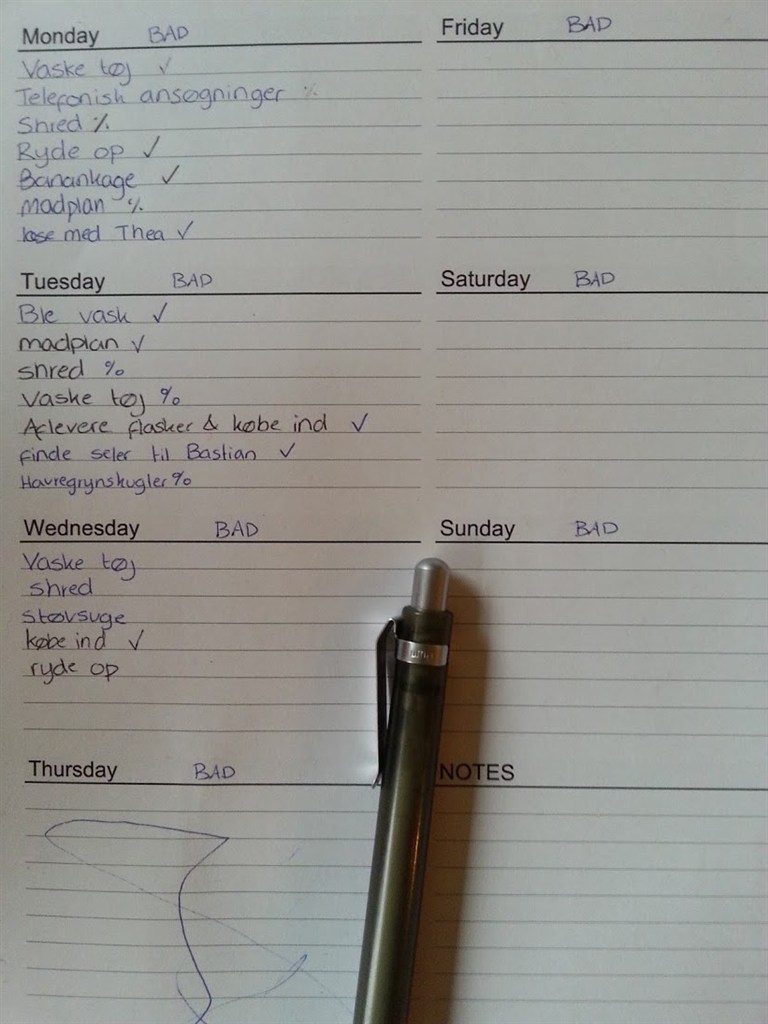 Monday BAD
Vaske tøj ✓
Telefonisk ansøgninger %
Shred %
Ryde op ✓
Banankage ✓
madplan %
læse med Thea ✓
Tuesday BAD
Ble vask ✓
madplan ✓
shred %
Vaske tøj %
Aflevere flasker & købe ind ✓
finde seler til Bastian ✓
Havregrynskugler %
Wednesday BAD
Vaske tøj
shred
støvsuge
købe ind ✓
ryde op
Thursday BAD
Friday BAD
Saturday BAD
Sunday BAD
NOTES